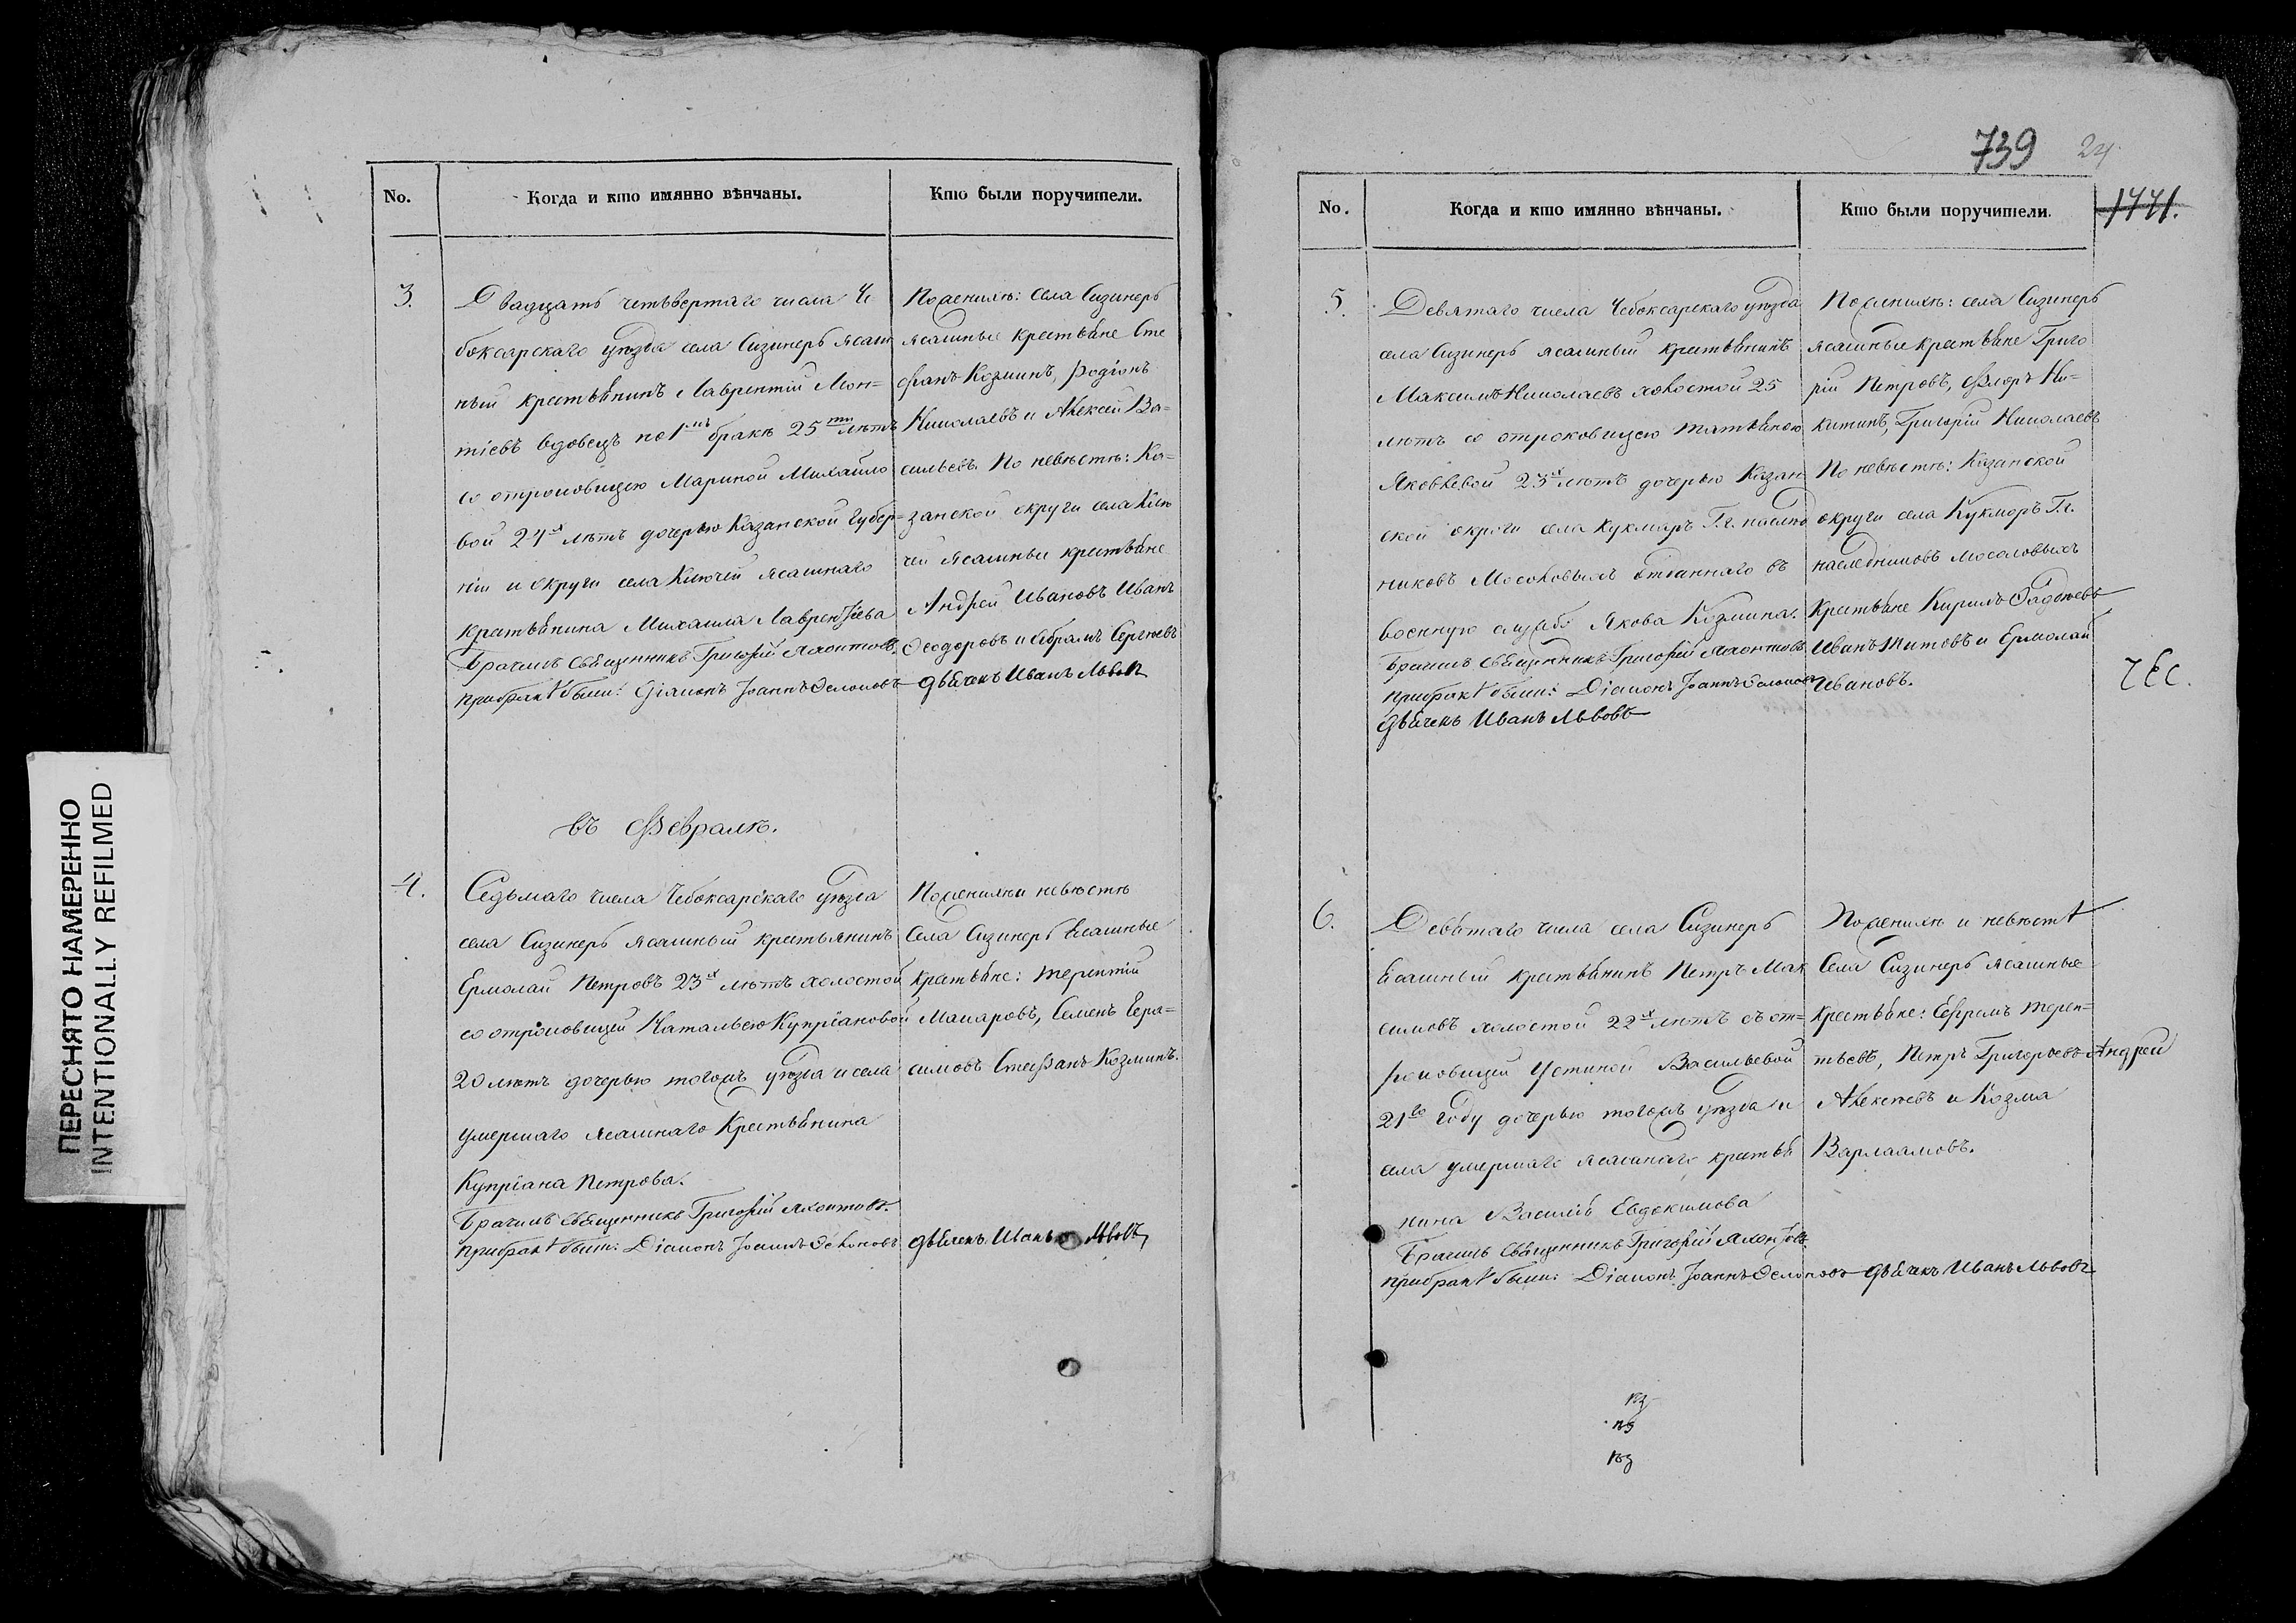 No.
Когда и кто имянно вѣнчаны.
Кто были поручители.
3.
Двадцать четьвертаго числа Че
боксарскаго уѣзда села Сизинеръ ясаш
ный крестьянинъ Лаврентій Мон=
тіевъ вдовецъ по 1мъ бракѣ 25ти лѣтъ
со отроковицею Мариной Михайло
вой 24х лѣтъ дочерью Казанской Губер=
ніи и округи села Ключей ясашнаго
крестьянина Михаила Лаврентіева
Брачилъ Священникъ Григорій Яхонтовъ.
при бракѣ были: Діаконъ Іоаннъ
Пожениxѣ: села Сизинеръ
ясашные крестьяне Сте
фанъ Козминъ, Родіонъ
Николаевъ и Алексей Ва=
сильевъ. По невѣстѣ: Ка=
занской округи села Клю
чей ясашные крестьяне
Андрей Ивановъ Иванъ
Феодоровъ и Абрамъ Сергеевъ
дьячекъ Иванъ Львовъ
въ Февралѣ.
4.
Седьмаго числа Чебоксарскаго уѣзда
села Сизинеръ ясашный крестьянинъ
Ермолай Петровъ 23х лѣтъ холостой
со отроковицей Натальею Купріановой
20 лѣтъ дочерью тогожъ уѣзда и села
умершаго ясашнаго Крестьянина
Купріана Петрова.
Брачилъ Священникъ Григорій Яхонтовъ.
при бракѣ были: Діаконъ Іоаннъ
Пожениxѣ и невѣстѣ
Села Сизинеръ Ясашные
крестьяне: Терентій
Макаровъ, Семенъ Гера=
симовъ Стефанъ Козминъ.
дьячекъ Иванъ Львовъ
739 24
No.
Когда и кто имянно вѣнчаны.
Кто были поручители.
1441.
5.
Девятаго числа Чебоксарскаго уѣзда
села Сизинеръ ясашный крестьянинъ
Максимъ Николаевъ холостой 25
лѣтъ со отроковицею Татьяною
Яковлевой 23х лѣтъ дочерью Казан
ской округи села Кукморъ Г.г. наслѣд
никовъ Мосоловыхъ отданнаго въ
военную службу Якова Козмина.
Брачилъ Священникъ Григорій Яхонтовъ
при бракѣ были: Діаконъ Іоаннъ
дьячекъ Иванъ Львовъ
Пожениxѣ: села Сизинеръ
ясашные крестьяне Григо
рій Петровъ, Флоръ Ни=
китинъ, Григорій Николаевъ
По невѣстѣ: Казанской
округи села Кукморъ Г.г.
наследниковъ Мосоловыхъ
Крестьяне Кирилъ Фадѣевъ
Иванъ Титовъ и Ермолай
Ивановъ.
6.
Девятаго числа села Сизинеръ
Ясашный крестьянинъ Петръ Мак
симовъ холостой 22х лѣтъ съ от=
роковицей Устиной Васильевой
21го году дочерью тогожъ уѣзда и
села умершаго ясашнаго крестья
нина Василья Евдокимова
Брачилъ Священникъ Григорій Яхонтовъ.
при бракѣ были: Діаконъ Іоаннъ дьячекъ Иванъ Львовъ
Пожениxѣ и невѣстѣ
Села Сизинеръ ясашные
Крестьяне: Ефремъ Терен=
тьевъ, Петръ Григорьевъ Андрей
Алексеевъ и Козма
Варлаамовъ.
ПЕРЕСНЯТО НАМЕРЕННО
INTENTIONALLY REFILMED